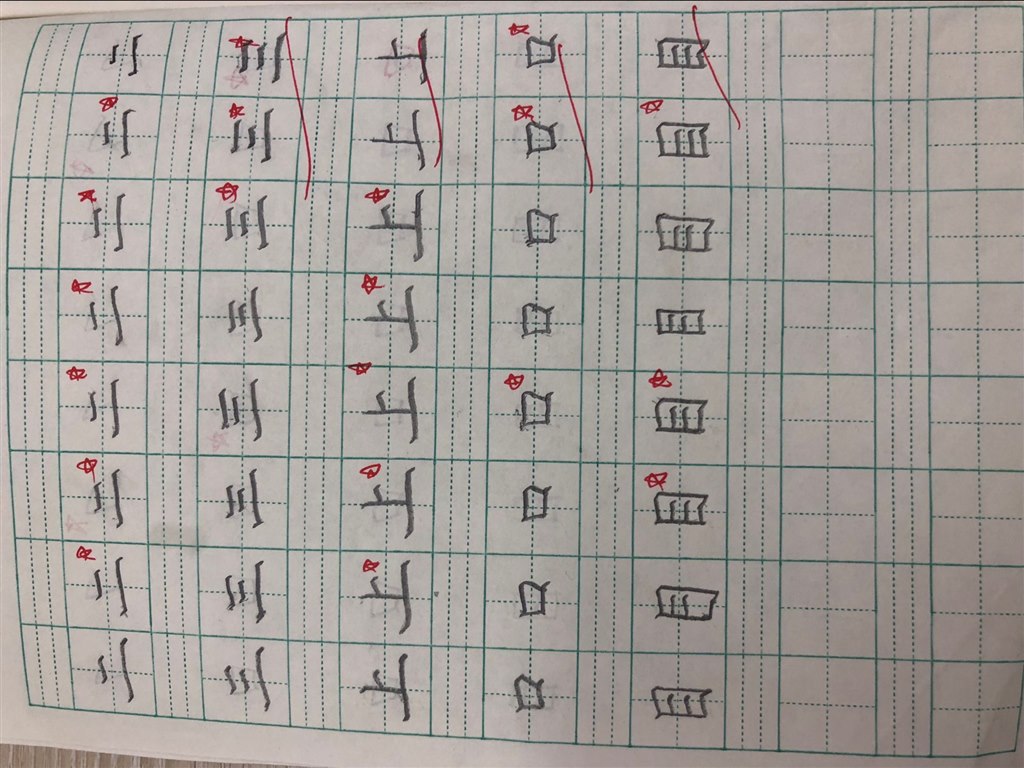 二 二 二 二 二 二 二 二
三 三 三 三 三 三 三 三
上 上 上 上 上 上 上 上
口 口 口 口 口 口 口 口
目 目 目 目 目 目 目 目